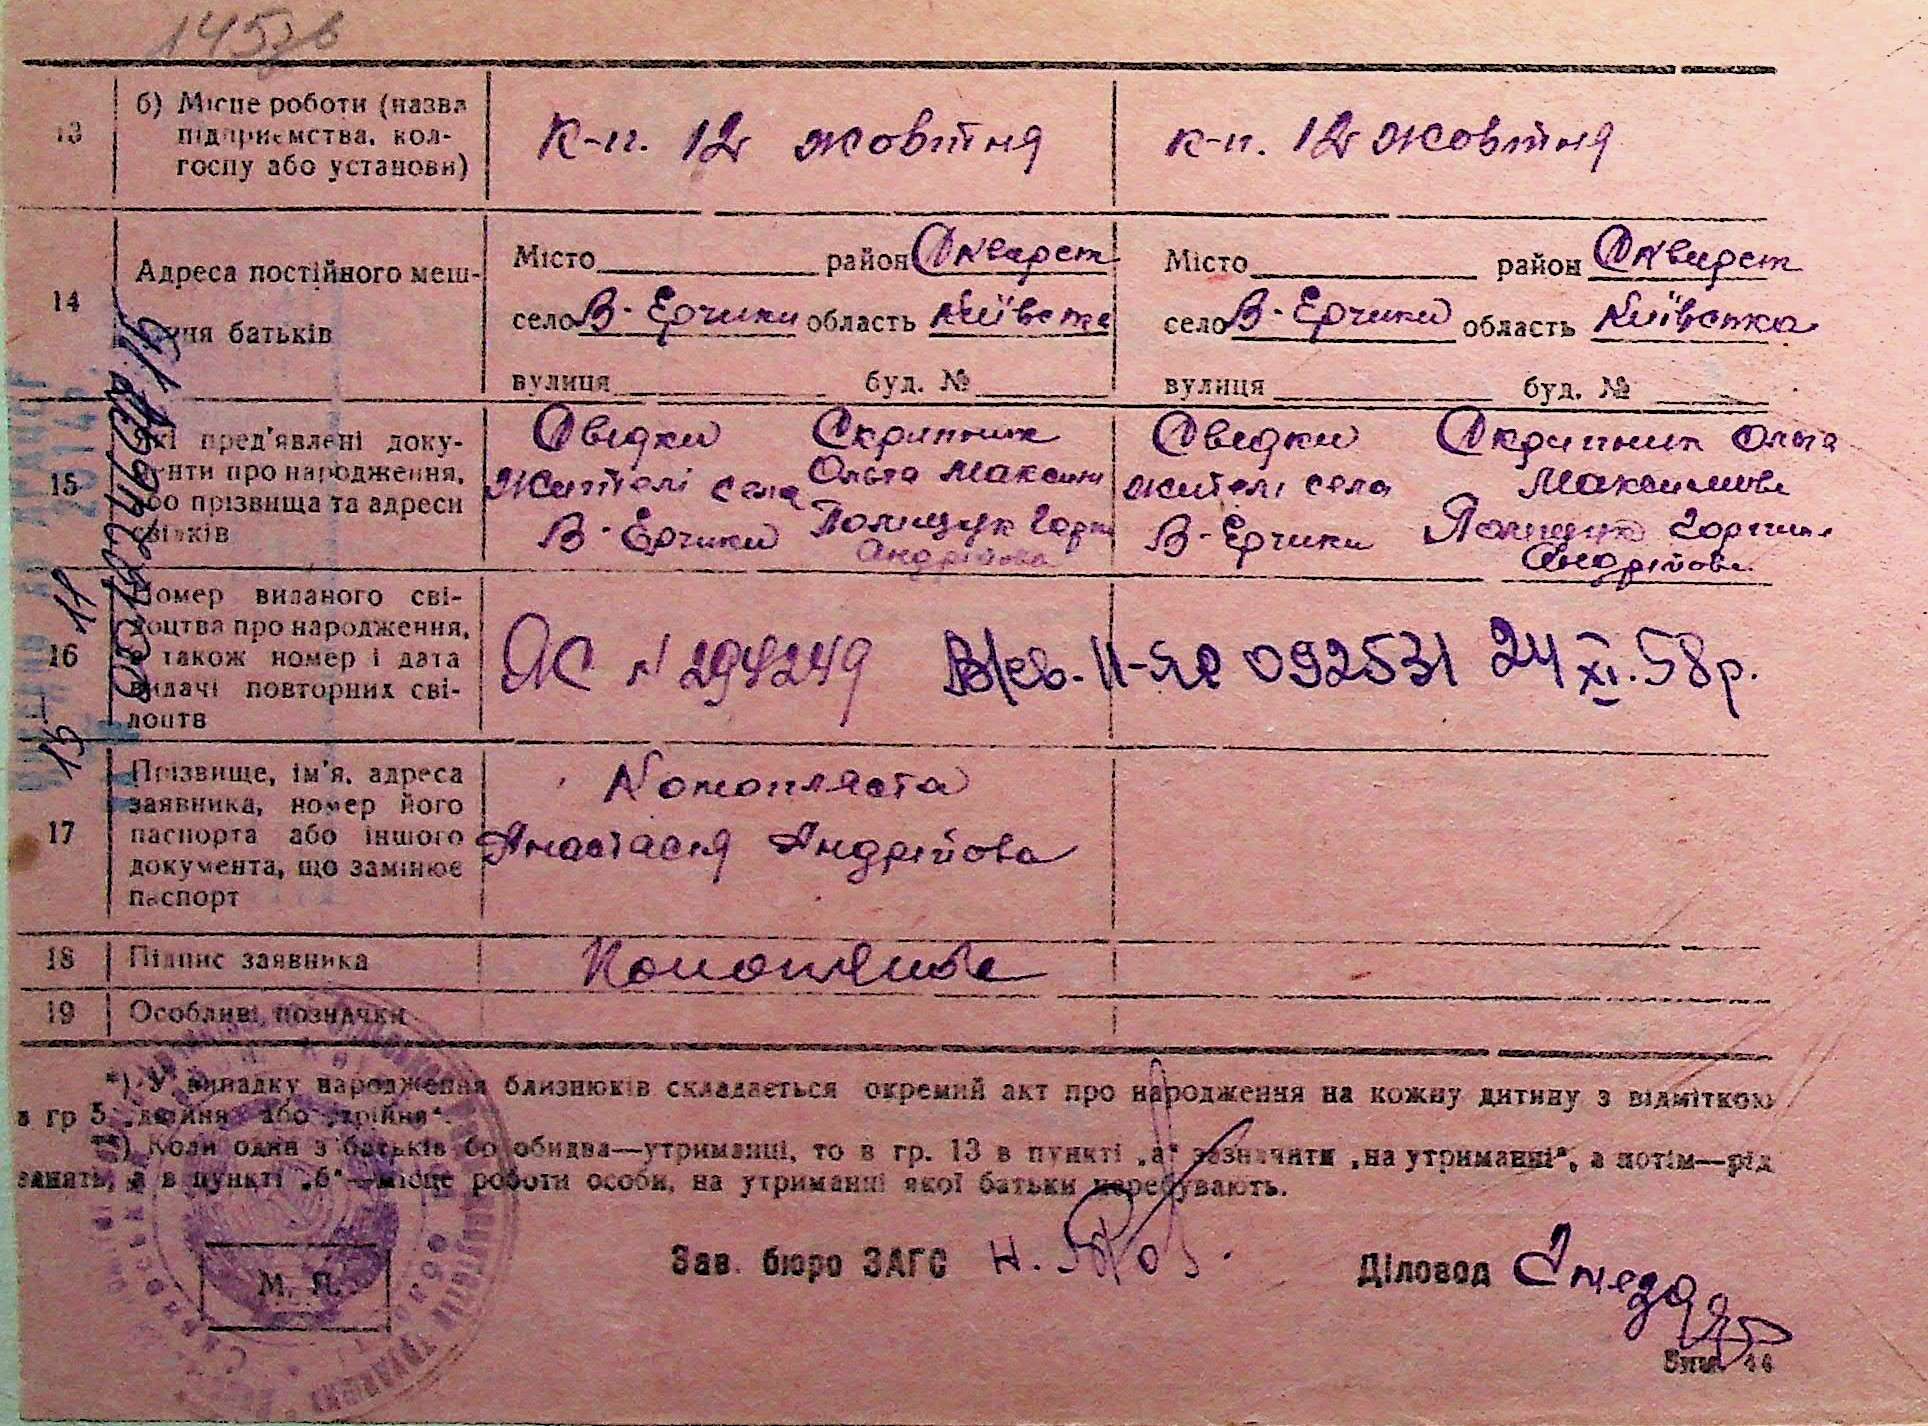 145зв
13
б) Місце роботи (назва
підприємства, кол-
госпу або установи)
к-п. 12 Жовтня
к-п. 12 Жовтня
14
Адреса постійного меш-
ння батьків
Місто район Сквирськ
село В-Єрчики область Київська
вулиця буд. №
Місто район Сквирськ
село В-Єрчики область Київська
вулиця буд. №
15
які пред'явлені доку-
енти про народження,
бо прізвища та адреси
свідків
Свідки Скрипник
Жителі села Ольга Максим
В-Єрчики Поліщук Горп
Андрійова
Свідки Скрипник Ольга
жителі села Максимова
В-Єрчики Поліщук Горпина
Андрійова
16
Номер виданого сві-
доцтва про народження,
а також номер і дата
видачі повторних сві-
доцтв
ЯС № 294249 В/св. II-ЯС 092531 24 XI.58р.
17
Прізвище, ім'я, адреса
заявника, номер його
паспорта або іншого
документа, що замінює
паспорт
Конопляста
Анастасія Андрійова
18
Підпис заявника
Конопляста
19
Особливі позначки
*) У випадку народження близнюків складається окремий акт про народження на кожну дитину з відміткою
в гр 5 „двійня" або „трійня".
**) Коли один з батьків бо обидва—утриманці, то в гр. 13 в пункті „а" зазначити „на утриманні", а потім—рід
занять, а в пункті „б"—місце роботи особи, на утриманні якої батьки перебувають.
М. П.
Зав. бюро ЗАГС
Діловод